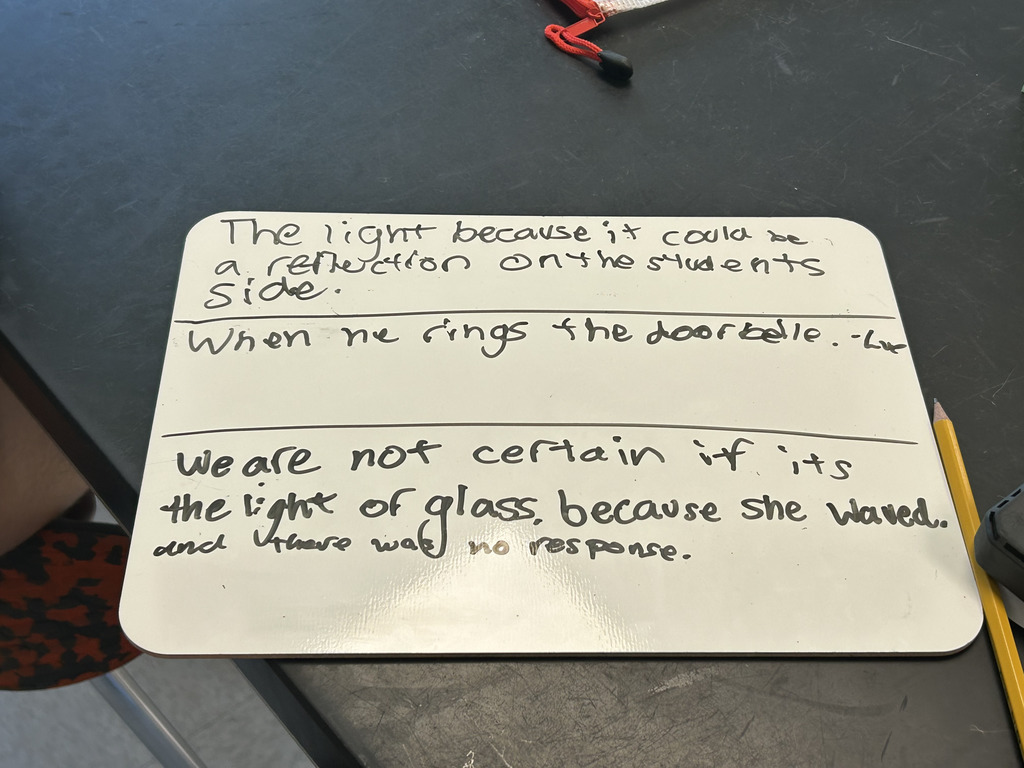 The light because it could be
a reflection on the students
side.
When he rings the doorbelle.
we are not certain if its
the light of glass, because she waved.
and there was no response.